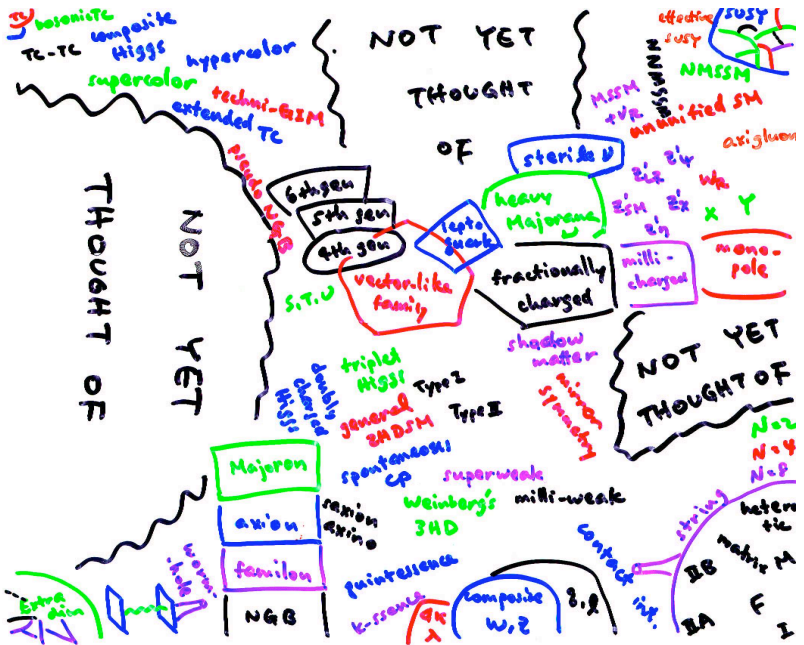 TC
bosonic TC
TC-TC
composite
Higgs
hypercolor
supercolor
techni-GIM
extended TC
pseudo NGB
NOT YET
THOUGHT
OF
effective
SUSY
SUSY
NMSSM
NNMSSM
MSSM
+νR
ununified SM
axigluon
sterile ν
heavy
Majorana
ν
Z'LR
Z'ψ
WR
Z'SM
Z'χ
Z'η
X
Y
6th gen
5th gen
4th gen
lepto
quark
vector-like
family
fractionally
charged
milli-
charged
mono-
pole
S,T,U
NOT YET
THOUGHT OF
shadow
matter
mirror
symmetry
NOT YET
THOUGHT OF
triplet
Higgs
doubly
charged
Higgs
Type I
Type II
general
2HDSM
spontaneous
CP
superweak
Weinberg's
3HD
milli-weak
Majoron
axion
saxion
axino
familon
NGB
quintessence
k-ssence
Extra
dim
worm-
hole
composite
W,Z
q,l
contact
int.
string
N=2
N=4
N=8
hetero
tic
matrix
M
IIB
IIA
F
I